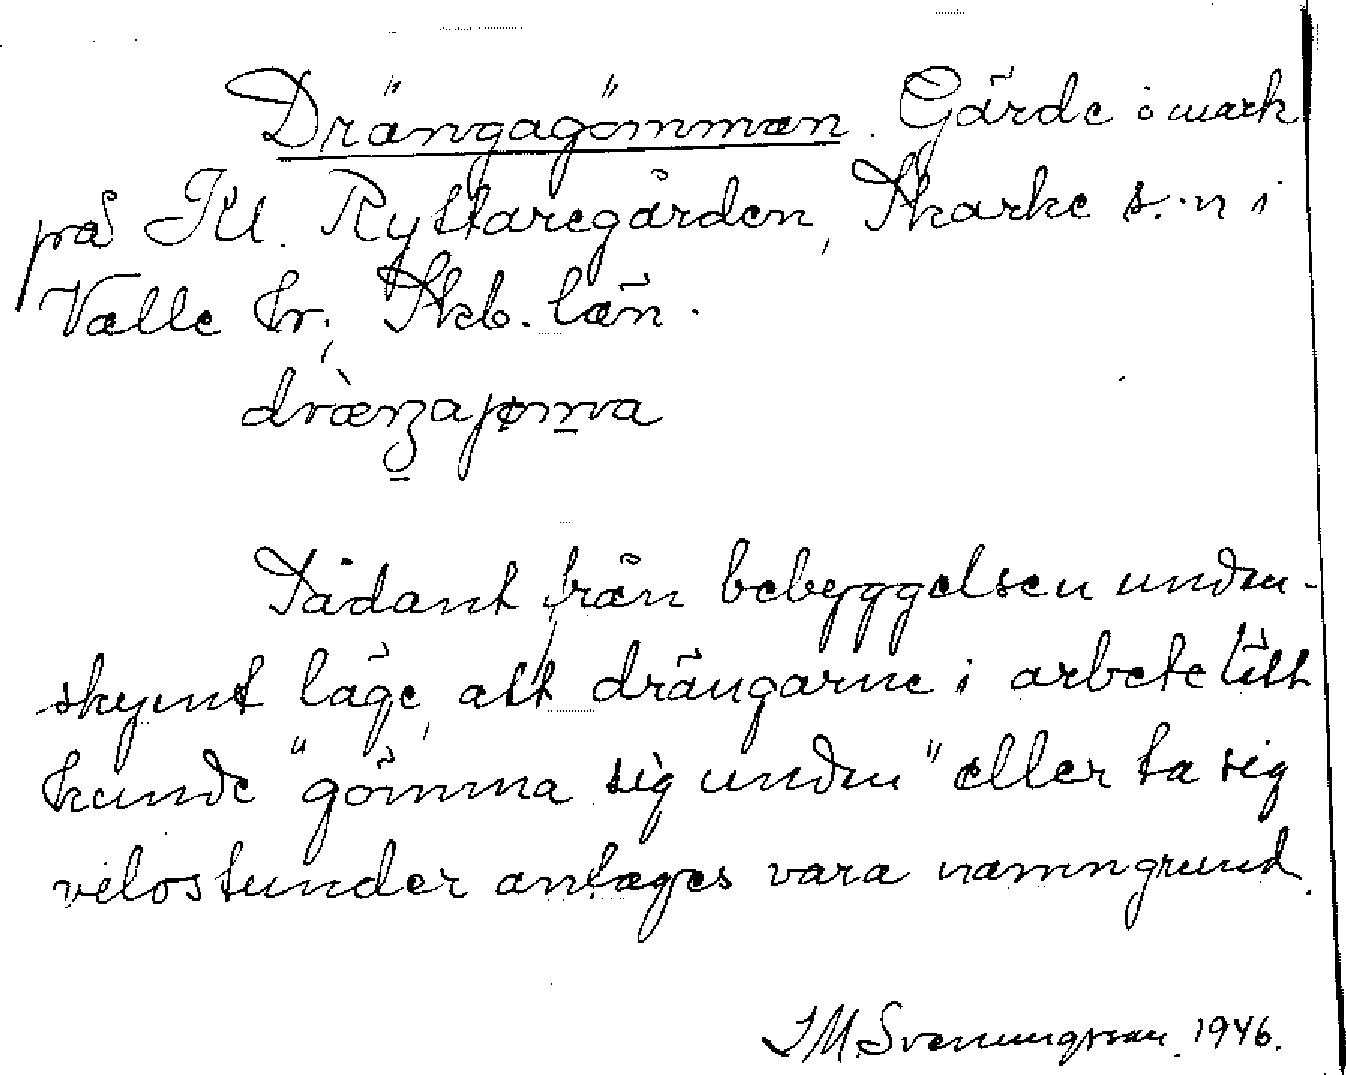 Drängagömman. Gärde i mark
på Kl. Ryttaregården, Skarke s:n i
Valle hr, Skb. län.
Sådant från bebyggelsen undan-
skymt läge, att drängarne i arbete lätt
kunde "gömma sig undan" eller ta sig
vilostunder antages vara namngrund.
J M Svenungsson 1946.